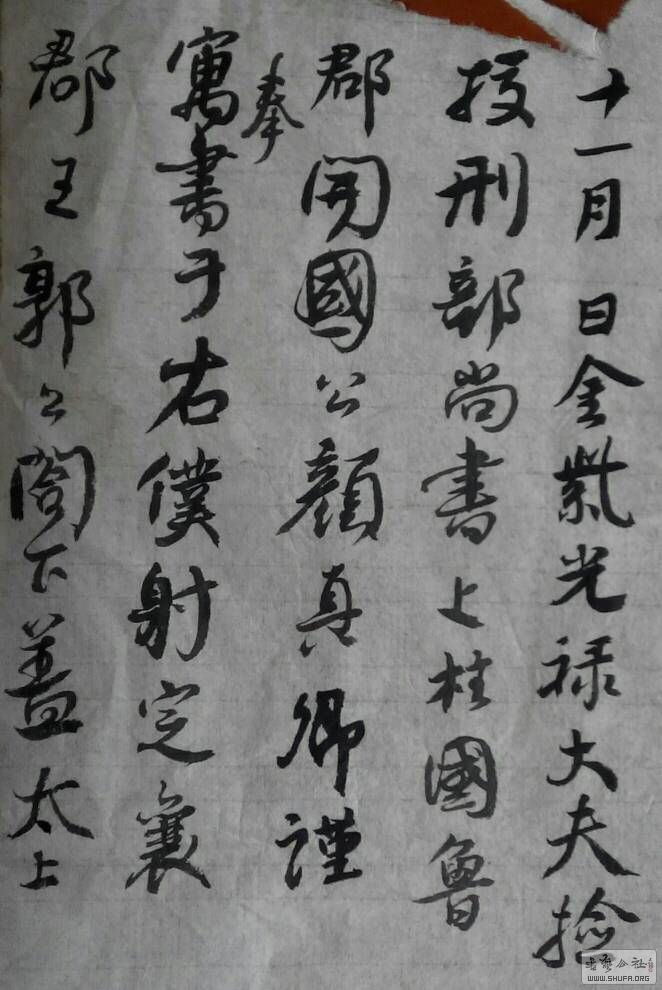 十一月日金紫光禄大夫捡
挍刑部尚書上柱國魯
郡開國公顏真卿謹
奉
寓書于右僕射定襄
郡王郭公閣下蓋太上
古麗公社
WWW.SHUFA.ORG